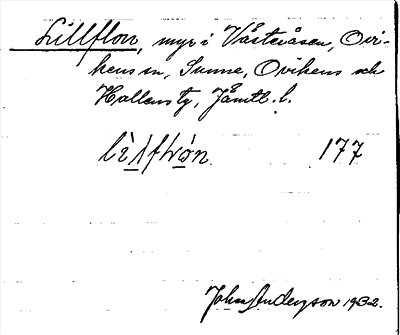 Lillflon, myr i Västeråsen, Ovi-
kens sn, Sunne, Ovikens och
Hallens tg, Jämtl. l.
lìlflòn 177
John Anderson 1932.